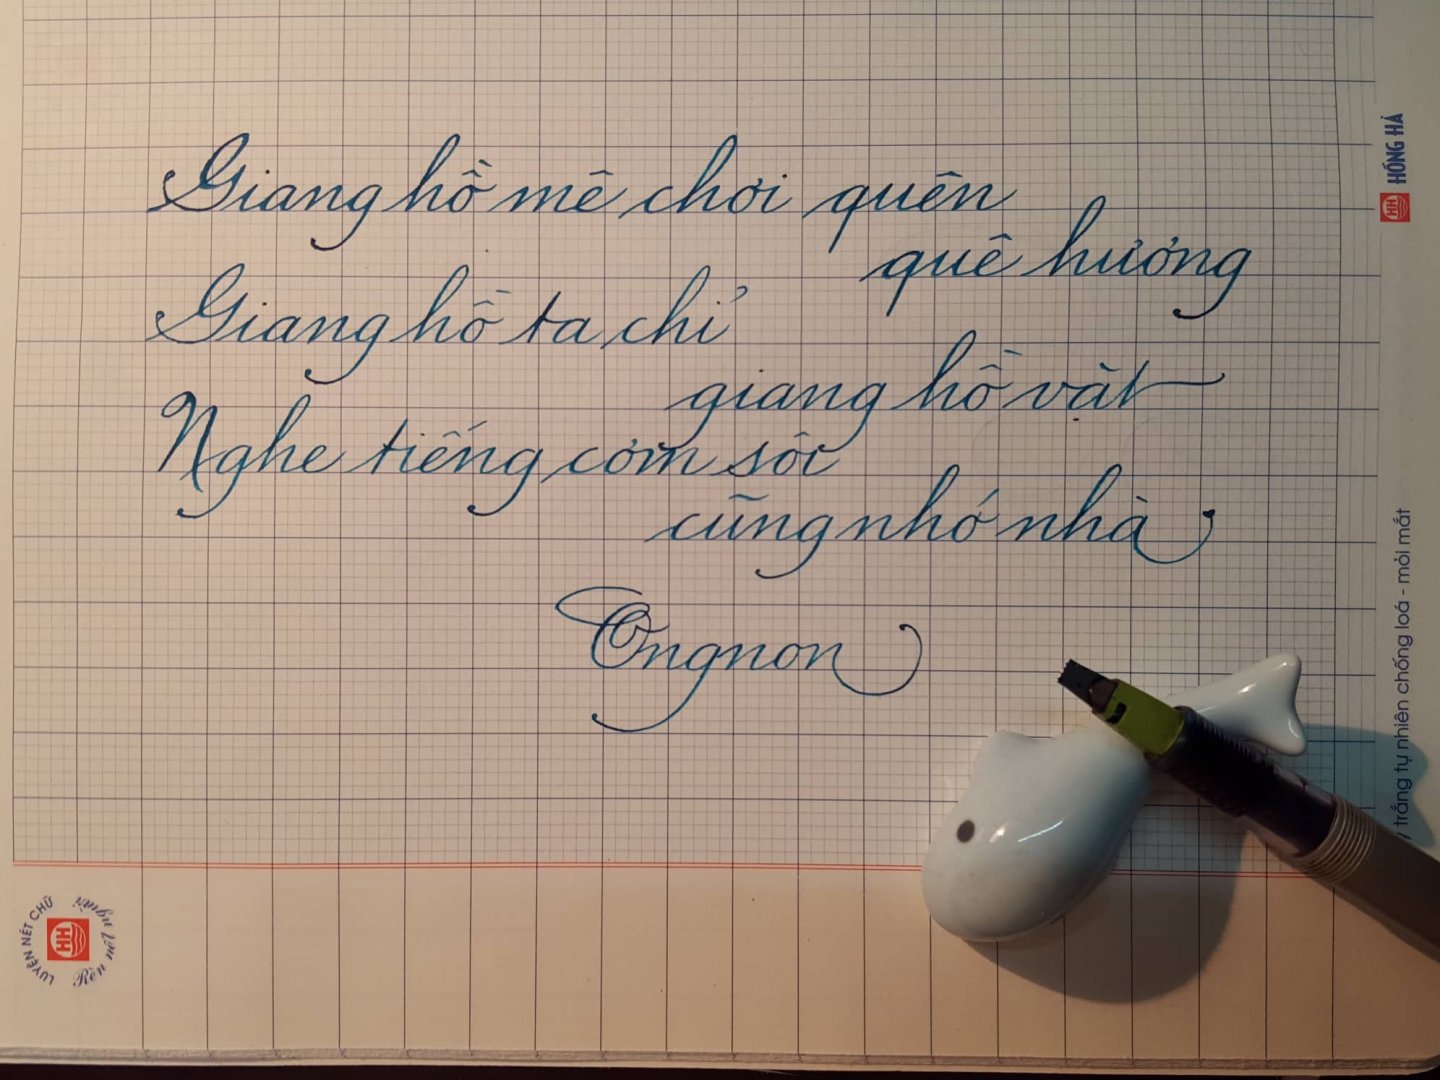 Giang hồ mê chơi quên
quê hương
Giang hồ ta chỉ
giang hồ vặt
Nghe tiếng cơm sôi
cũng nhớ nhà
Ongnon
HH HỒNG HÀ
y trắng tự nhiên chống loá - mỏi mắt
LUYỆN NÉT CHỮ
Rèn nên người
HH